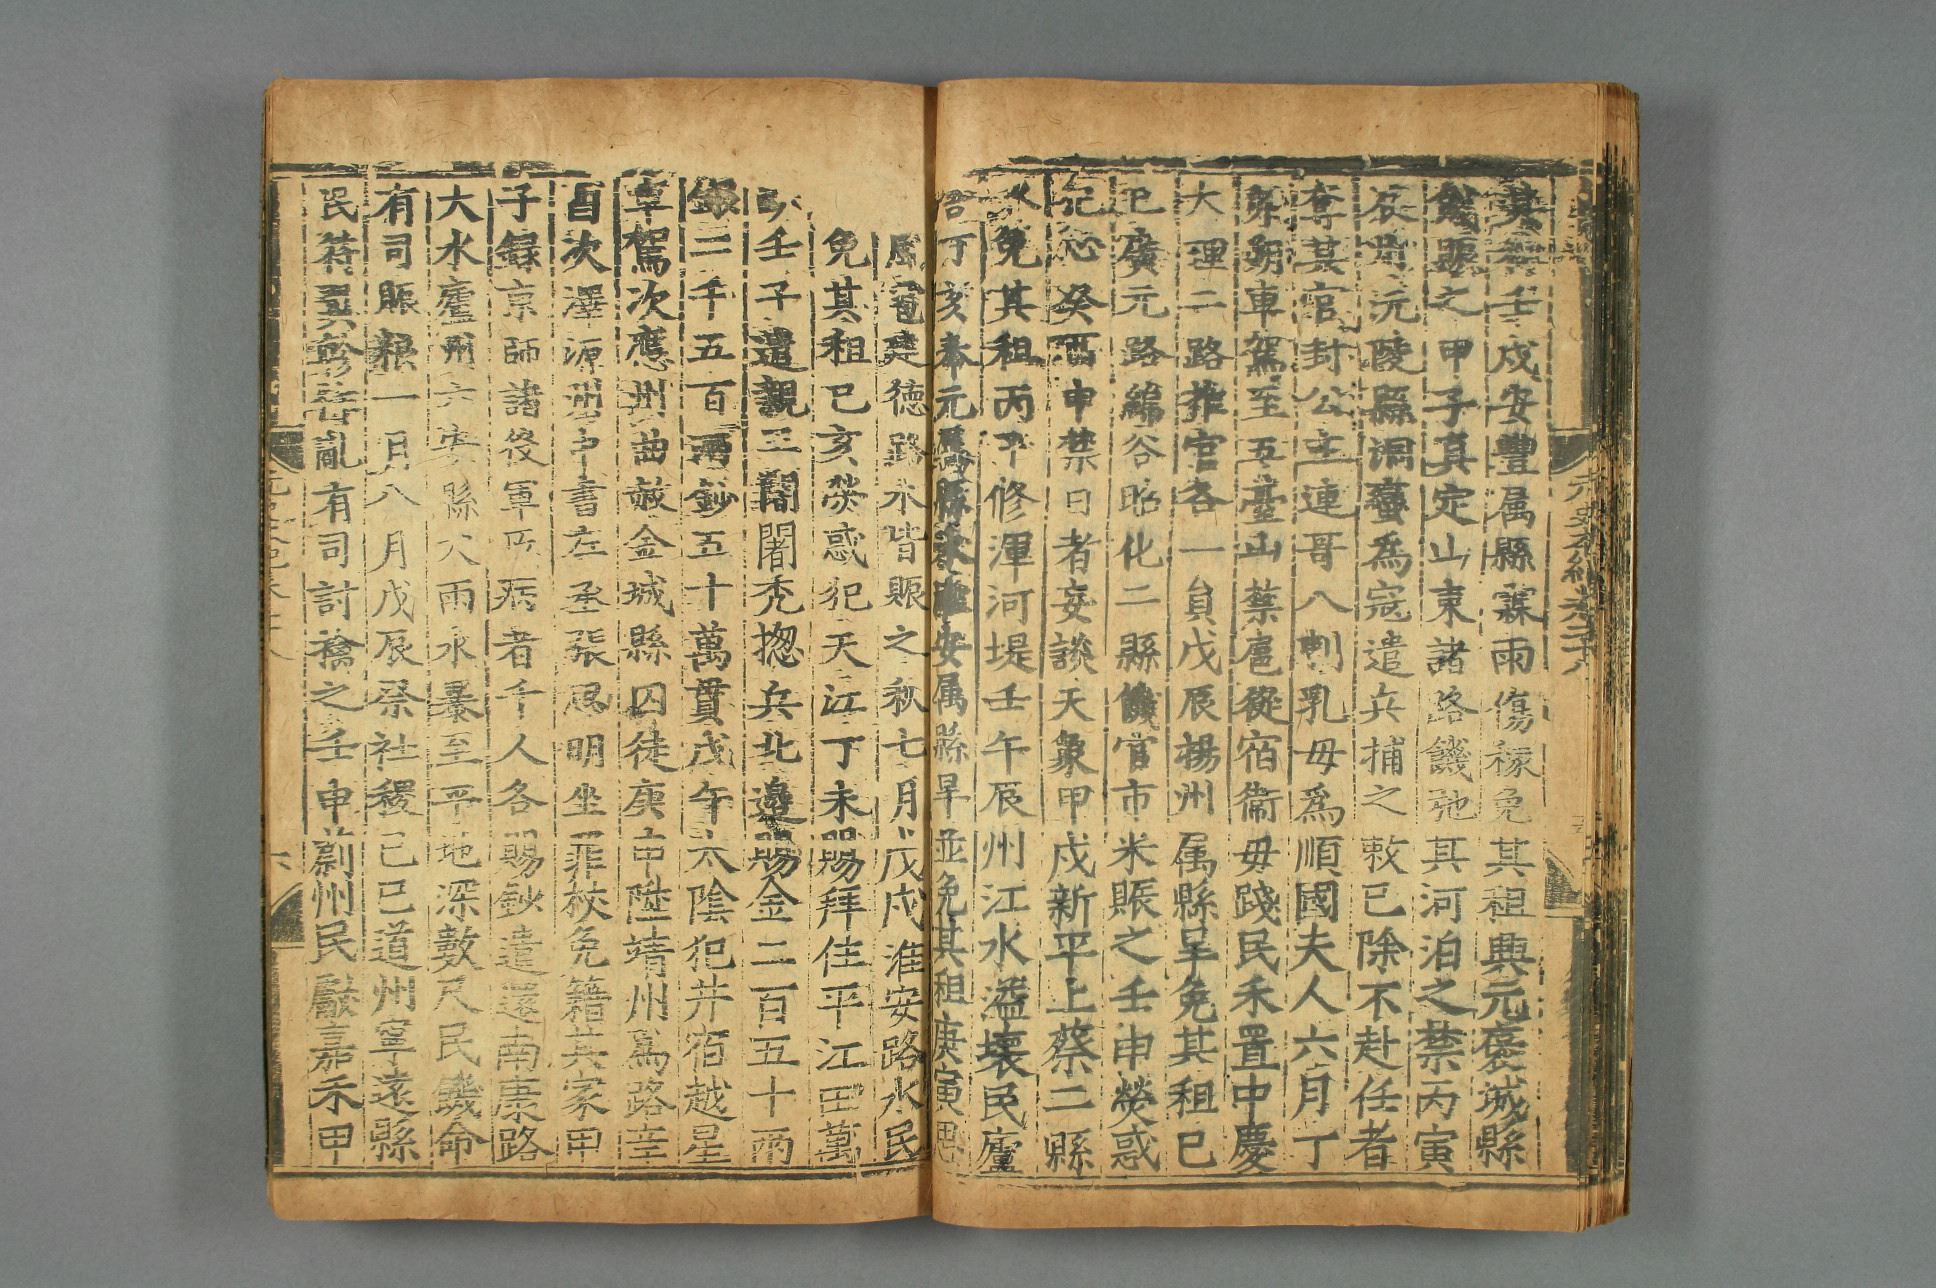 元史本紀卷二十八 五
其徭壬戌安豐属縣霖雨傷稼免其租興元褒城縣
饑賑之甲子真定山東諸路饑弛其河泊之禁丙寅
辰州沅陵縣洞蠻為寇遣兵捕之敕已除不赴任者
奪其官封公主連哥八剌乳母為順國夫人六月丁
卯朔車駕至五臺山禁扈從宿衛毋踐民禾置中慶
大理二路推官各一員戊辰揚州属縣旱免其租已
巳廣元路綿谷昭化二縣饑官市米賑之壬申熒惑
犯心癸酉申禁日者妄談天象甲戌新平上蔡二縣
水免其租丙子修渾河堤壬午辰州江水溢壞民廬
舍丁亥奉元屬縣水淮安属縣旱並免其租庚寅思
風雹建德路水皆賑之秋七月戊戌淮安路水民
免其租已亥熒惑犯天江丁未賜拜住平江田萬
畝壬子遣親王闍闍禿揔兵北邊賜金二百五十兩
銀二千五百兩鈔五十萬貫戊午太陰犯井宿越星
車駕次應州曲赦金城縣囚徒庚申陞靖州為路辛
酉次渾源州中書左丞張思明坐罪杖免籍其家甲
子録京師諸役軍匠病者千人各賜鈔遣還南康路
大水廬州六安縣大雨水暴至平地深數尺民饑命
有司賑粮一月八月戊辰祭社稷已巳道州寧遠縣
民符翼軫作亂有司討擒之壬申蘄州民獻嘉禾甲
元史本紀卷二十八 六